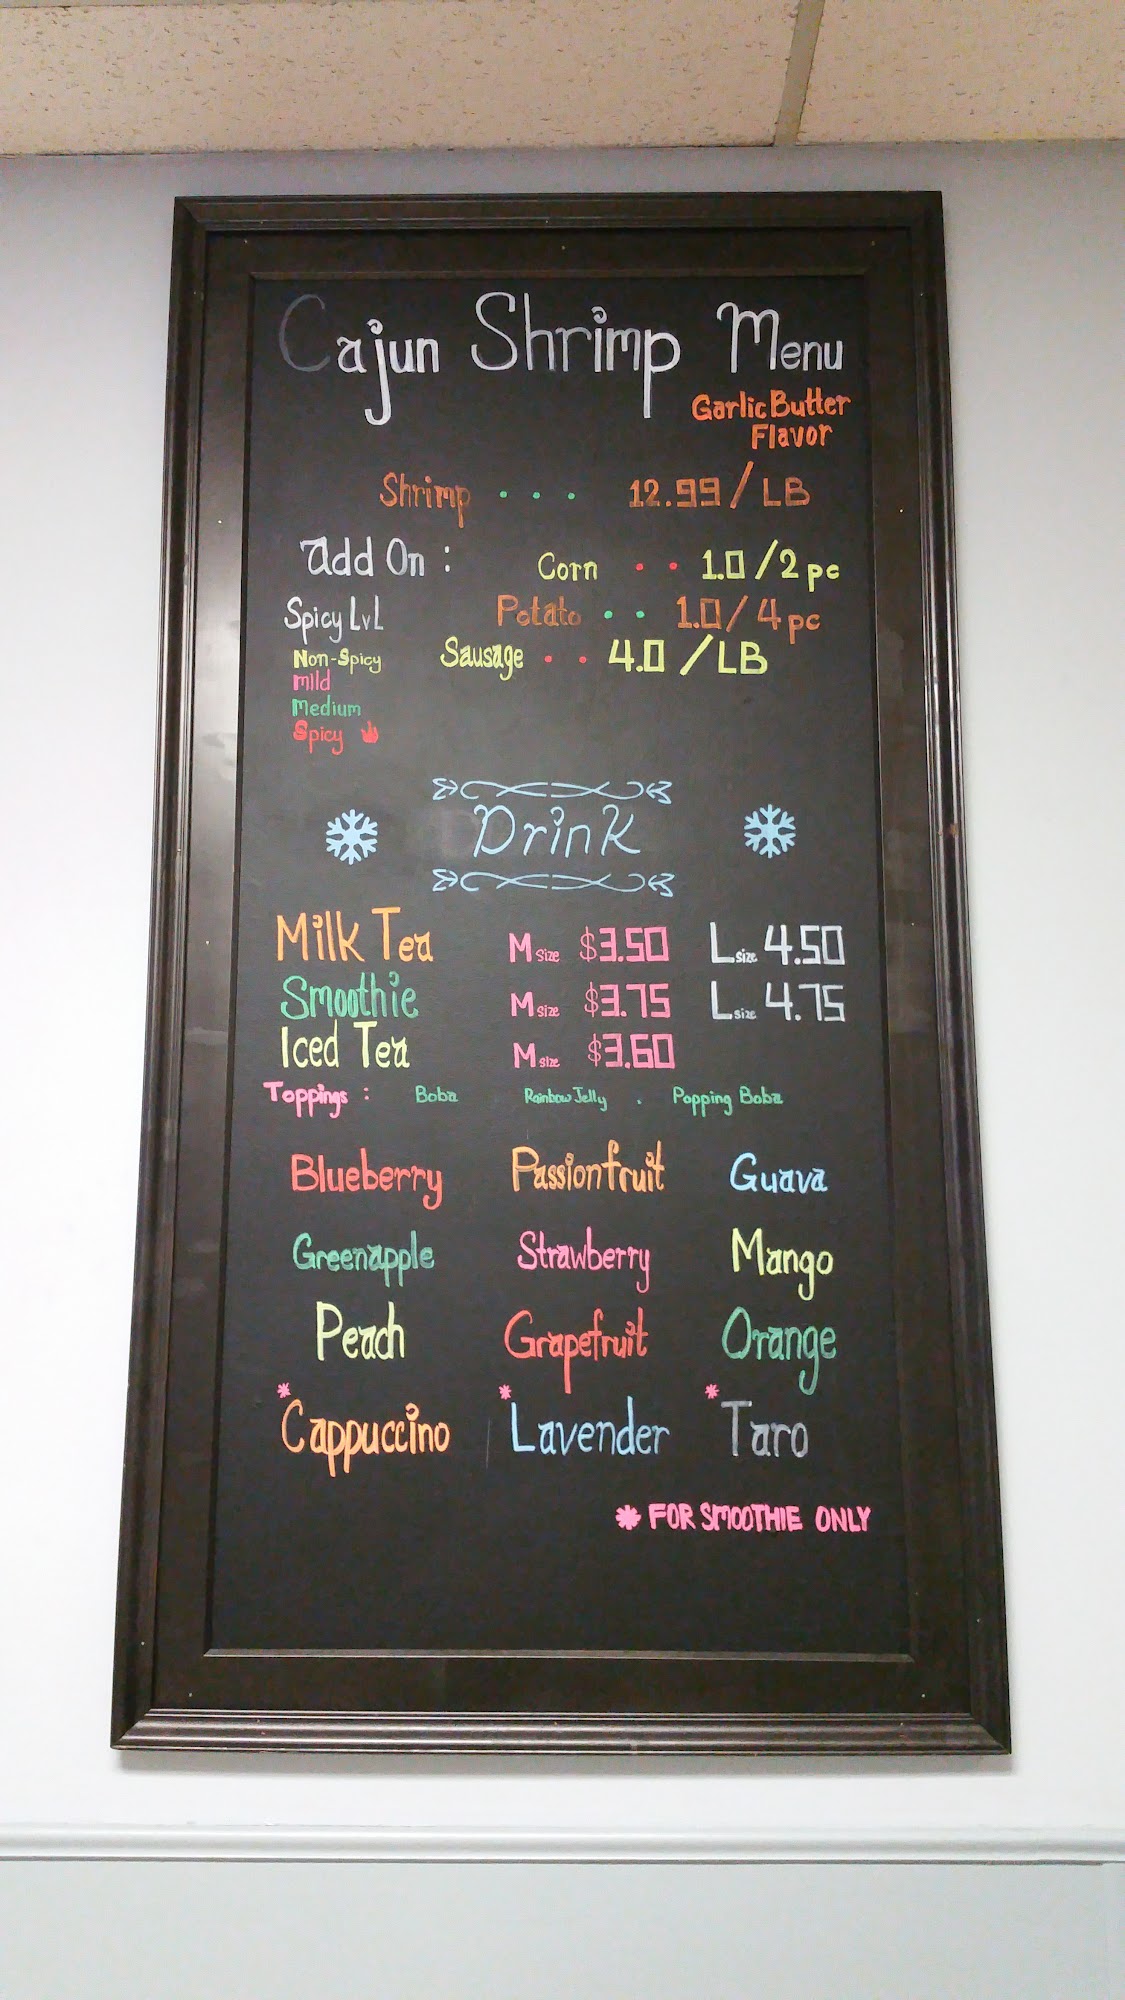 Cajun Shrimp Menu
Garlic Butter
Flavor
Shrimp . . . 12.99 / LB
Add On : Corn . . 1.0 / 2 pc
Spicy LvL Potato . . 1.0 / 4 pc
Non-Spicy Sausage . . 4.0 / LB
Mild
Medium
Spicy
Drink
Milk Tea M size $3.50 L size 4.50
Smoothie M size $3.75 L size 4.75
Iced Tea M size $3.60
Toppings : Boba Rainbow Jelly . Popping Boba
Blueberry Passionfruit Guava
Greenapple Strawberry Mango
Peach Grapefruit Orange
*Cappuccino *Lavender *Taro
* FOR SMOOTHIE ONLY